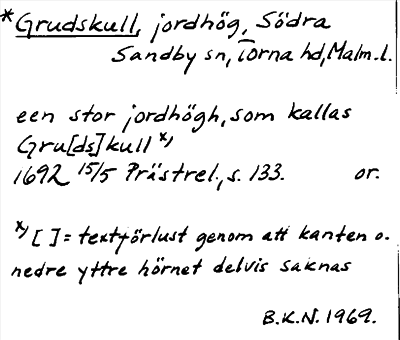 * Grudskull, jordhög, Södra
Sandby sn, Torna hd, Malm.l.
een stor jordhögh, som kallas
Gru[ds]kull x)
1692 15/5 Prästrel., s. 133. or.
x) [ ] = textförlust genom att kanten o.
nedre yttre hörnet delvis saknas
B.K.N. 1969.